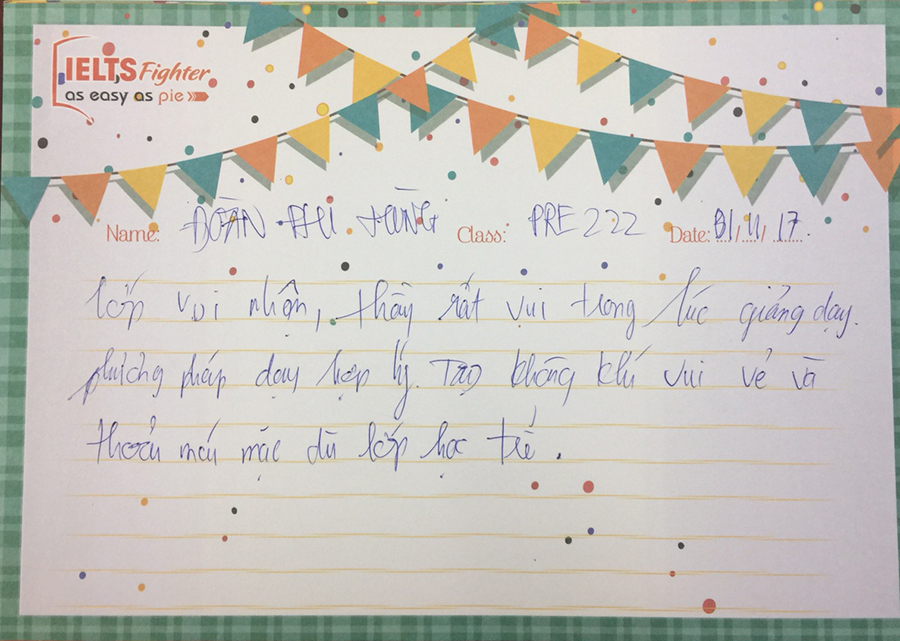 IELTS Fighter
as easy as pie
Name: ĐOÀN PHI HÙNG Class: PRE 222 Date: 01/11/17.
lớp vui nhộn, thầy rất vui trong lúc giảng dạy.
phương pháp dạy hợp lý. Tạo không khí vui vẻ và
thoải mái mặc dù lớp học trễ.